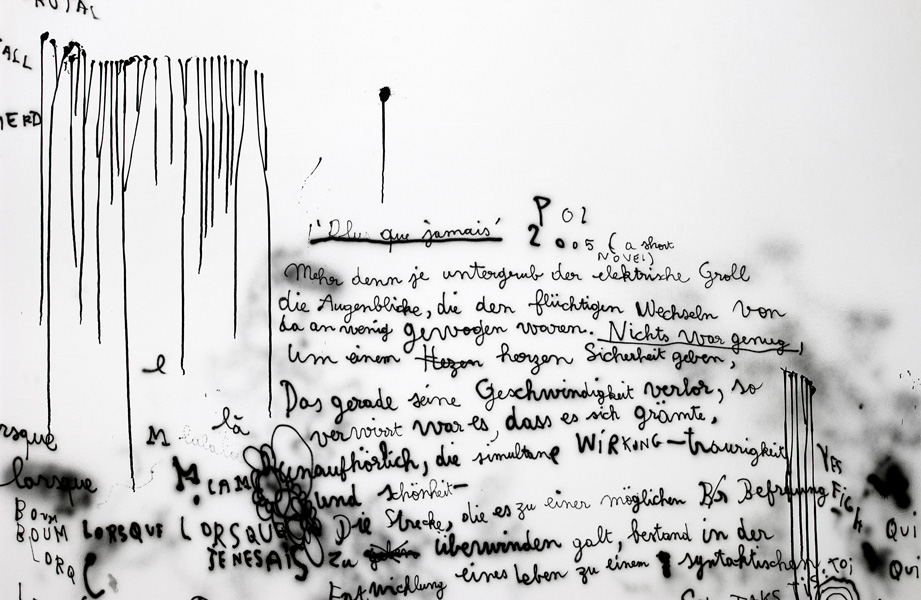 BRUTAL
ALL
MERD
P 02
'Plus que jamais' 2005 (a short
NOVEL)
Mehr denn je untergrub der elektrische Groll
die Augenblicke, die den flüchtigen Wechseln von
da an wenig gewogen waren. Nichts war genug,
Um einem Herzen herzen Sicherheit geben,
Das gerade seine Geschwindigkeit verlor, so
verwirrt war es, dass es sich grämte,
unaufhörlich, die simultane WiRKUNG-traurigkeit
und schönheit-
Die Strecke, die es zu einer möglichen Befreiung
Zu überwinden galt, bestand in der
Entwicklung eines Leben zu einem syntaktischen
l
là
M
lorsque
M. CAM
BOUM
BOUM LORSQUE LORSQUE
LORQ JENESAIS
YES
FiGh
QUI
TOi
QUI
TAKS